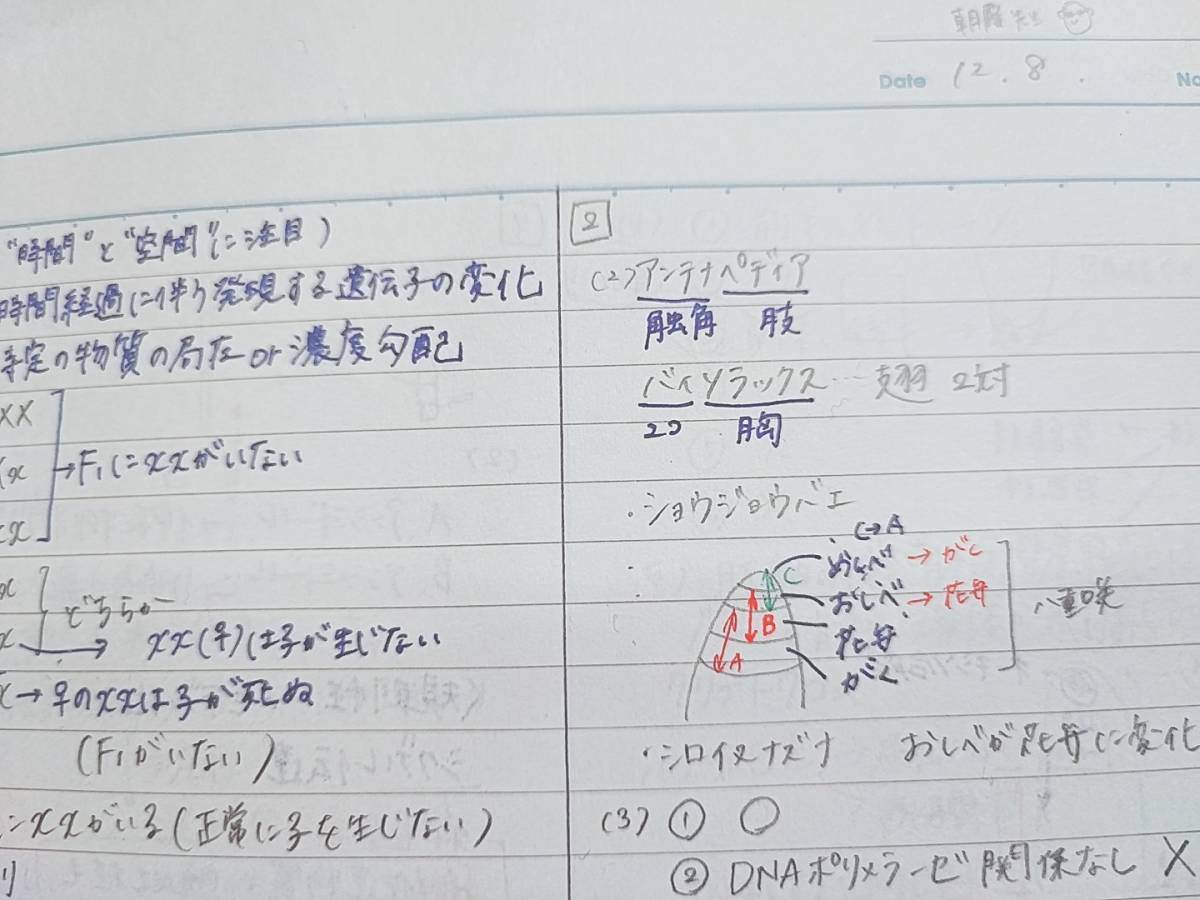 朝霞先生
Date 12.8.
No
"時間"と"空間"に注目)
時間経過に伴う発現する遺伝子の変化
特定の物質の局在or濃度勾配
XX
x
x
→F₁にxxがいない
x
x
どちらか
→ xx(♀)は子が生じない
x→♀のxxは子が死ぬ
(F₁がいない)
=xxがいる(正常に子を生じない)
り
2
(2)アンテナペディア
触角 肢
バイソラックス…翅2対
2つ 胸
・ショウジョウバエ
C→A
めしべ→がく
おしべ→花弁
花弁
がく
A
B
C
八重咲
・シロイヌナズナ おしべが花弁に変化
(3)① ○
② DNAポリメラーゼ関係なし X